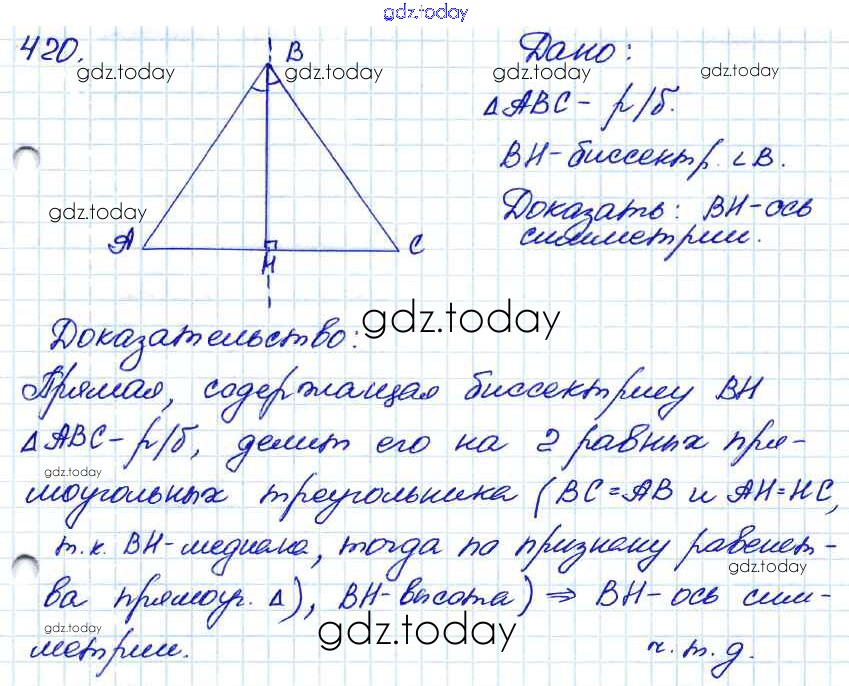 gdz.today
420.
B
Дано:
gdz.today gdz.today gdz.today gdz.today
△ABC - р/б.
BH - биссектр. ∠B.
gdz.today
Доказать: BH - ось
симметрии.
A
H
C
gdz.today
Доказательство:
Прямая, содержащая биссектрису BH
△ABC - р/б, делит его на 2 равных пря-
gdz.today
моугольных треугольника (BC = AB и AH = HC,
т.к. BH - медиана, тогда по признаку равенст-
gdz.today
ва прямоуг. △), BH - высота) ⇒ BH - ось сим-
gdz.today
gdz.today
метрии.
ч.т.д.